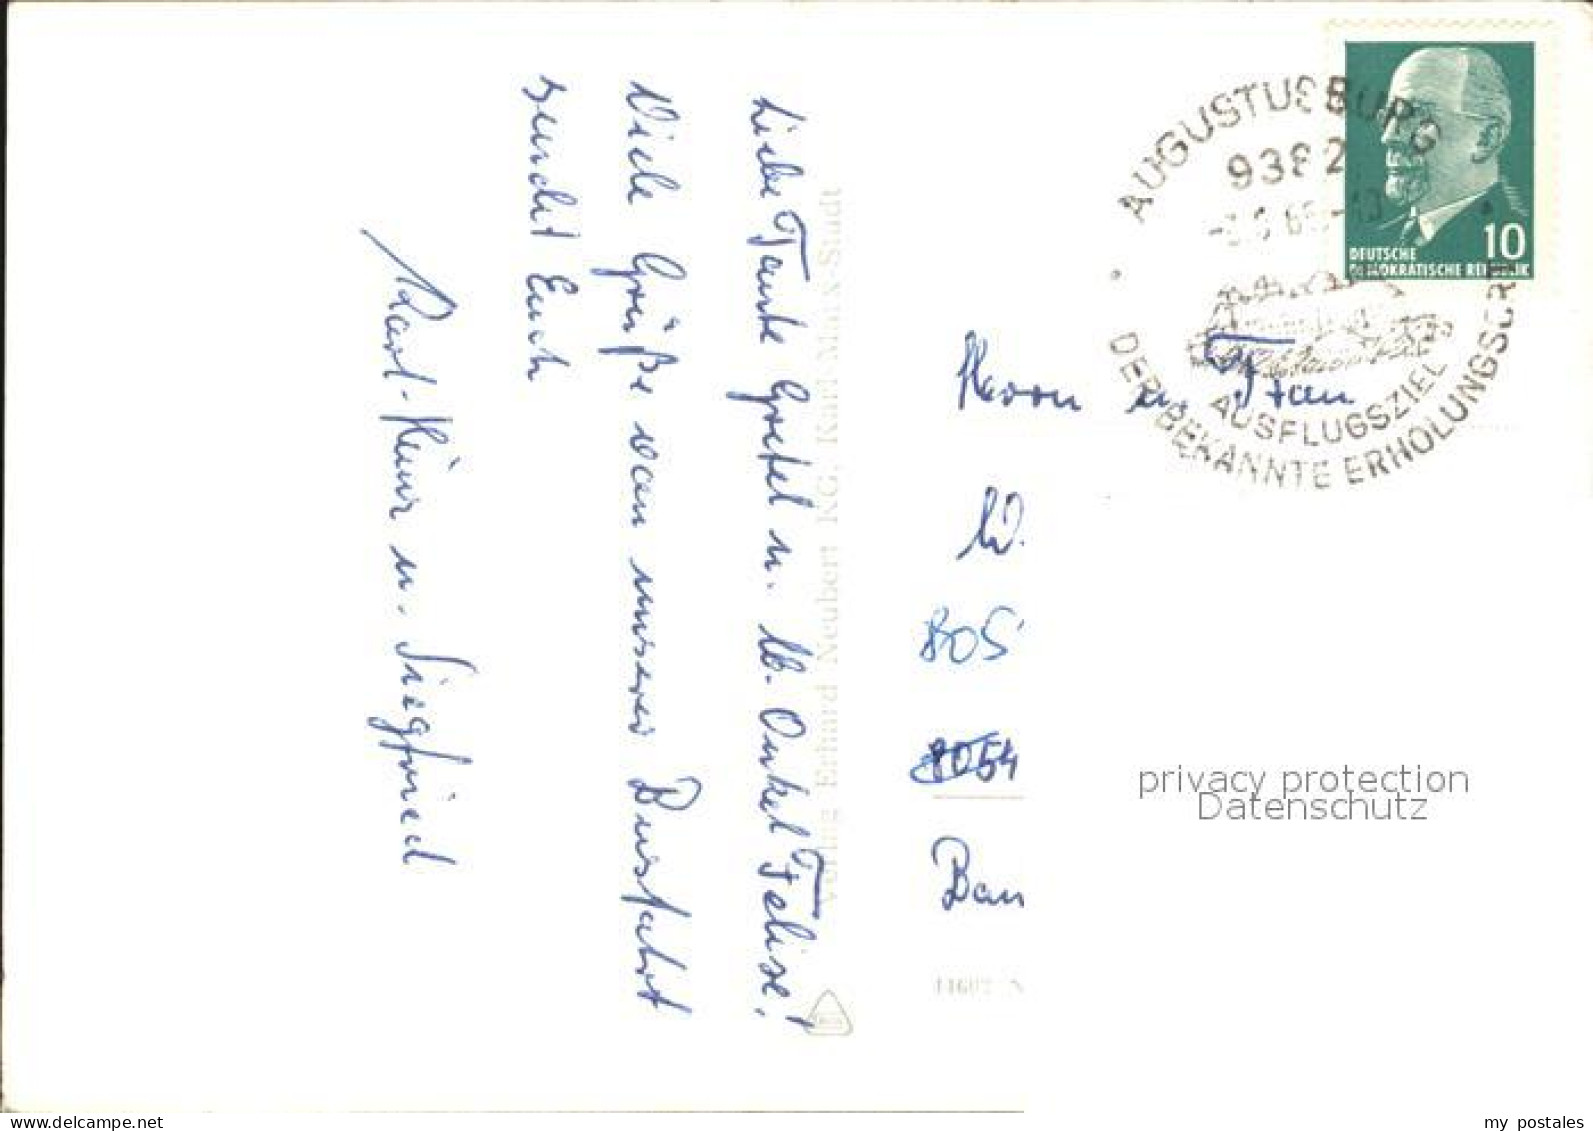 Liebe Tante Gretel u. lb. Onkel Felix!
Viele Grüße von unserer Busfahrt
sendet Euch
Karl-Heinz u. Siegfried
Verlag Erhard Neubert KG. Karl-Marx-Stadt
AUGUSTUSBURG
9382
AUSFLUGSZIEL
DER BEKANNTE ERHOLUNGSORT
10
DEUTSCHE
DEMOKRATISCHE REPUBLIK
Herrn u. Frau
W.
805
8054
privacy protection
Datenschutz
my postales